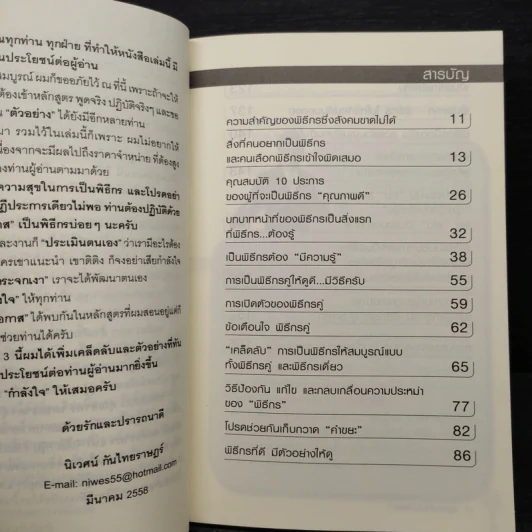 ณทุกท่าน ทุกฝ่าย ที่ทำให้หนังสือเล่มนี้ มี
ประโยชน์ต่อผู้อ่าน
สมบูรณ์ ผมก็ขออภัยไว้ ณ ที่นี้ เพราะถ้าจะให้
ต้องเข้าหลักสูตร พูดจริง ปฏิบัติจริงๆ และขอ
"ตัวอย่าง" ได้ยังมีอีกหลายท่าน
มา รวมไว้ในเล่มนี้ก็เพราะ ผมไม่อยากให้
เนื่องจากจะมีผลไปถึงราคาจำหน่าย ที่ต้องสูง
ท่านผู้อ่านตามมาด้วย
ความสุขในการเป็นพิธีกร และโปรดอย่า
ฎีประการเดียวไม่พอ ท่านต้องปฏิบัติด้วย
าส" เป็นพิธีกรบ่อยๆ นะครับ
และงานก็ "ประเมินตนเอง" ว่าเรามีอะไรต้อง
ครเขาแนะนำ เขาติติง ก็จงอย่าเสียกำลังใจ
ระจกเงา" เราจะได้พัฒนาตนเอง
งใจ" ให้ทุกท่าน
อกาส" ได้พบกันในหลักสูตรที่ผมสอนอยู่แต่ก็
ช่วยท่านได้ครับ
3 นี้ผมได้เพิ่มเคล็ดลับและตัวอย่างที่ทัน
ประโยชน์ต่อท่านผู้อ่านมากยิ่งขึ้น
"กำลังใจ" ให้เสมอครับ
ด้วยรักและปรารถนาดี
นิเวศน์ กันไทยราษฎร์
E-mail: niwes55@hotmail.com
มีนาคม 2558
สารบัญ
ความสำคัญของพิธีกรซึ่งสังคมขาดไม่ได้ 11
สิ่งที่คนอยากเป็นพิธีกร
และคนเลือกพิธีกรเข้าใจผิดเสมอ 13
คุณสมบัติ 10 ประการ
ของผู้ที่จะเป็นพิธีกร "คุณภาพดี" 26
บทบาทหน้าที่ของพิธีกรเป็นสิ่งแรก
ที่พิธีกร...ต้องรู้ 32
เป็นพิธีกรต้อง "มีความรู้" 38
การเป็นพิธีกรคู่ให้ดูดี...มีวิธีครับ 55
การเปิดตัวของพิธีกรคู่ 59
ข้อเตือนใจ พิธีกรคู่ 62
"เคล็ดลับ" การเป็นพิธีกรให้สมบูรณ์แบบ
ทั้งพิธีกรคู่ และพิธีกรเดี่ยว 65
วิธีป้องกัน แก้ไข และกลบเกลื่อนความประหม่า
ของ "พิธีกร" 77
โปรดช่วยกันเก็บกวาด "คำขยะ" 82
พิธีกรที่ดี มีตัวอย่างให้ดู 86